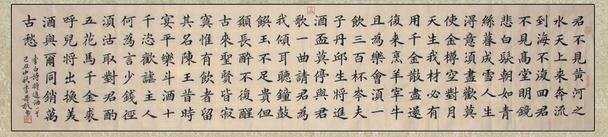 君不見黃河之
水天上來奔流
到海不復回君
不見高堂明鏡
悲白髮朝如青
絲暮成雪人生
得意須盡歡莫
使金樽空對月
天生我材必有
用千金散盡還
復來烹羊宰牛
且為樂會須一
飲三百杯岑夫
子丹丘生將進
酒盃莫停與君
歌一曲請君為
我傾耳聽鐘鼓
饌玉不足貴但
願長醉不復醒
古來聖賢皆寂
寞惟有飲者留
其名陳王昔時
宴平樂斗酒十
千恣歡謔主人
何為言少錢徑
須沽取對君酌
五花馬千金裘
呼兒將出換美
酒與爾同銷萬
古愁
李白詩將進酒一首